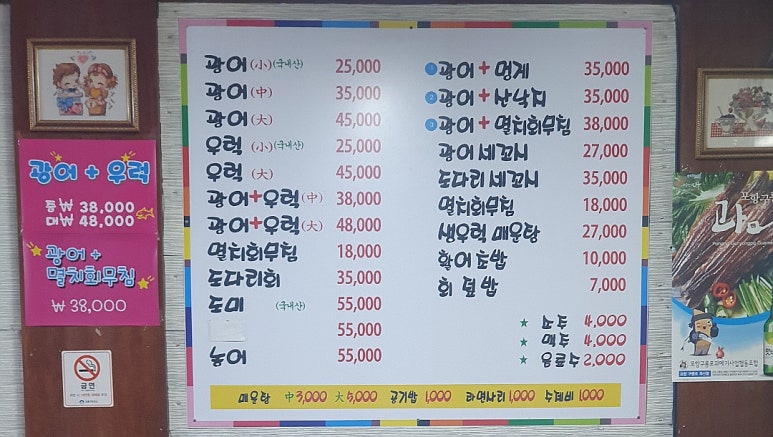 광어 + 우럭
중₩ 38,000
대₩ 48,000
광어 +
멸치회무침
₩ 38,000
금연
광어 (小) (국내산) 25,000
광어 (中) 35,000
광어 (大) 45,000
우럭 (小) (국내산) 25,000
우럭 (大) 45,000
광어+우럭 (中) 38,000
광어+우럭 (大) 48,000
멸치회무침 18,000
도다리회 35,000
도미 (국내산) 55,000
55,000
농어 55,000
1 광어 + 멍게 35,000
2 광어 + 산낙지 35,000
3 광어 + 멸치회무침 38,000
광어 세꼬시 27,000
도다리 세꼬시 35,000
멸치회무침 18,000
생우럭 매운탕 27,000
활어초밥 10,000
회 덮밥 7,000
★ 소주 4,000
★ 맥주 4,000
★ 음료수 2,000
매운탕 中 3,000 大 5,000 공기밥 1,000 라면사리 1,000 수제비 1,000
포항구룡포과메기사업협동조합